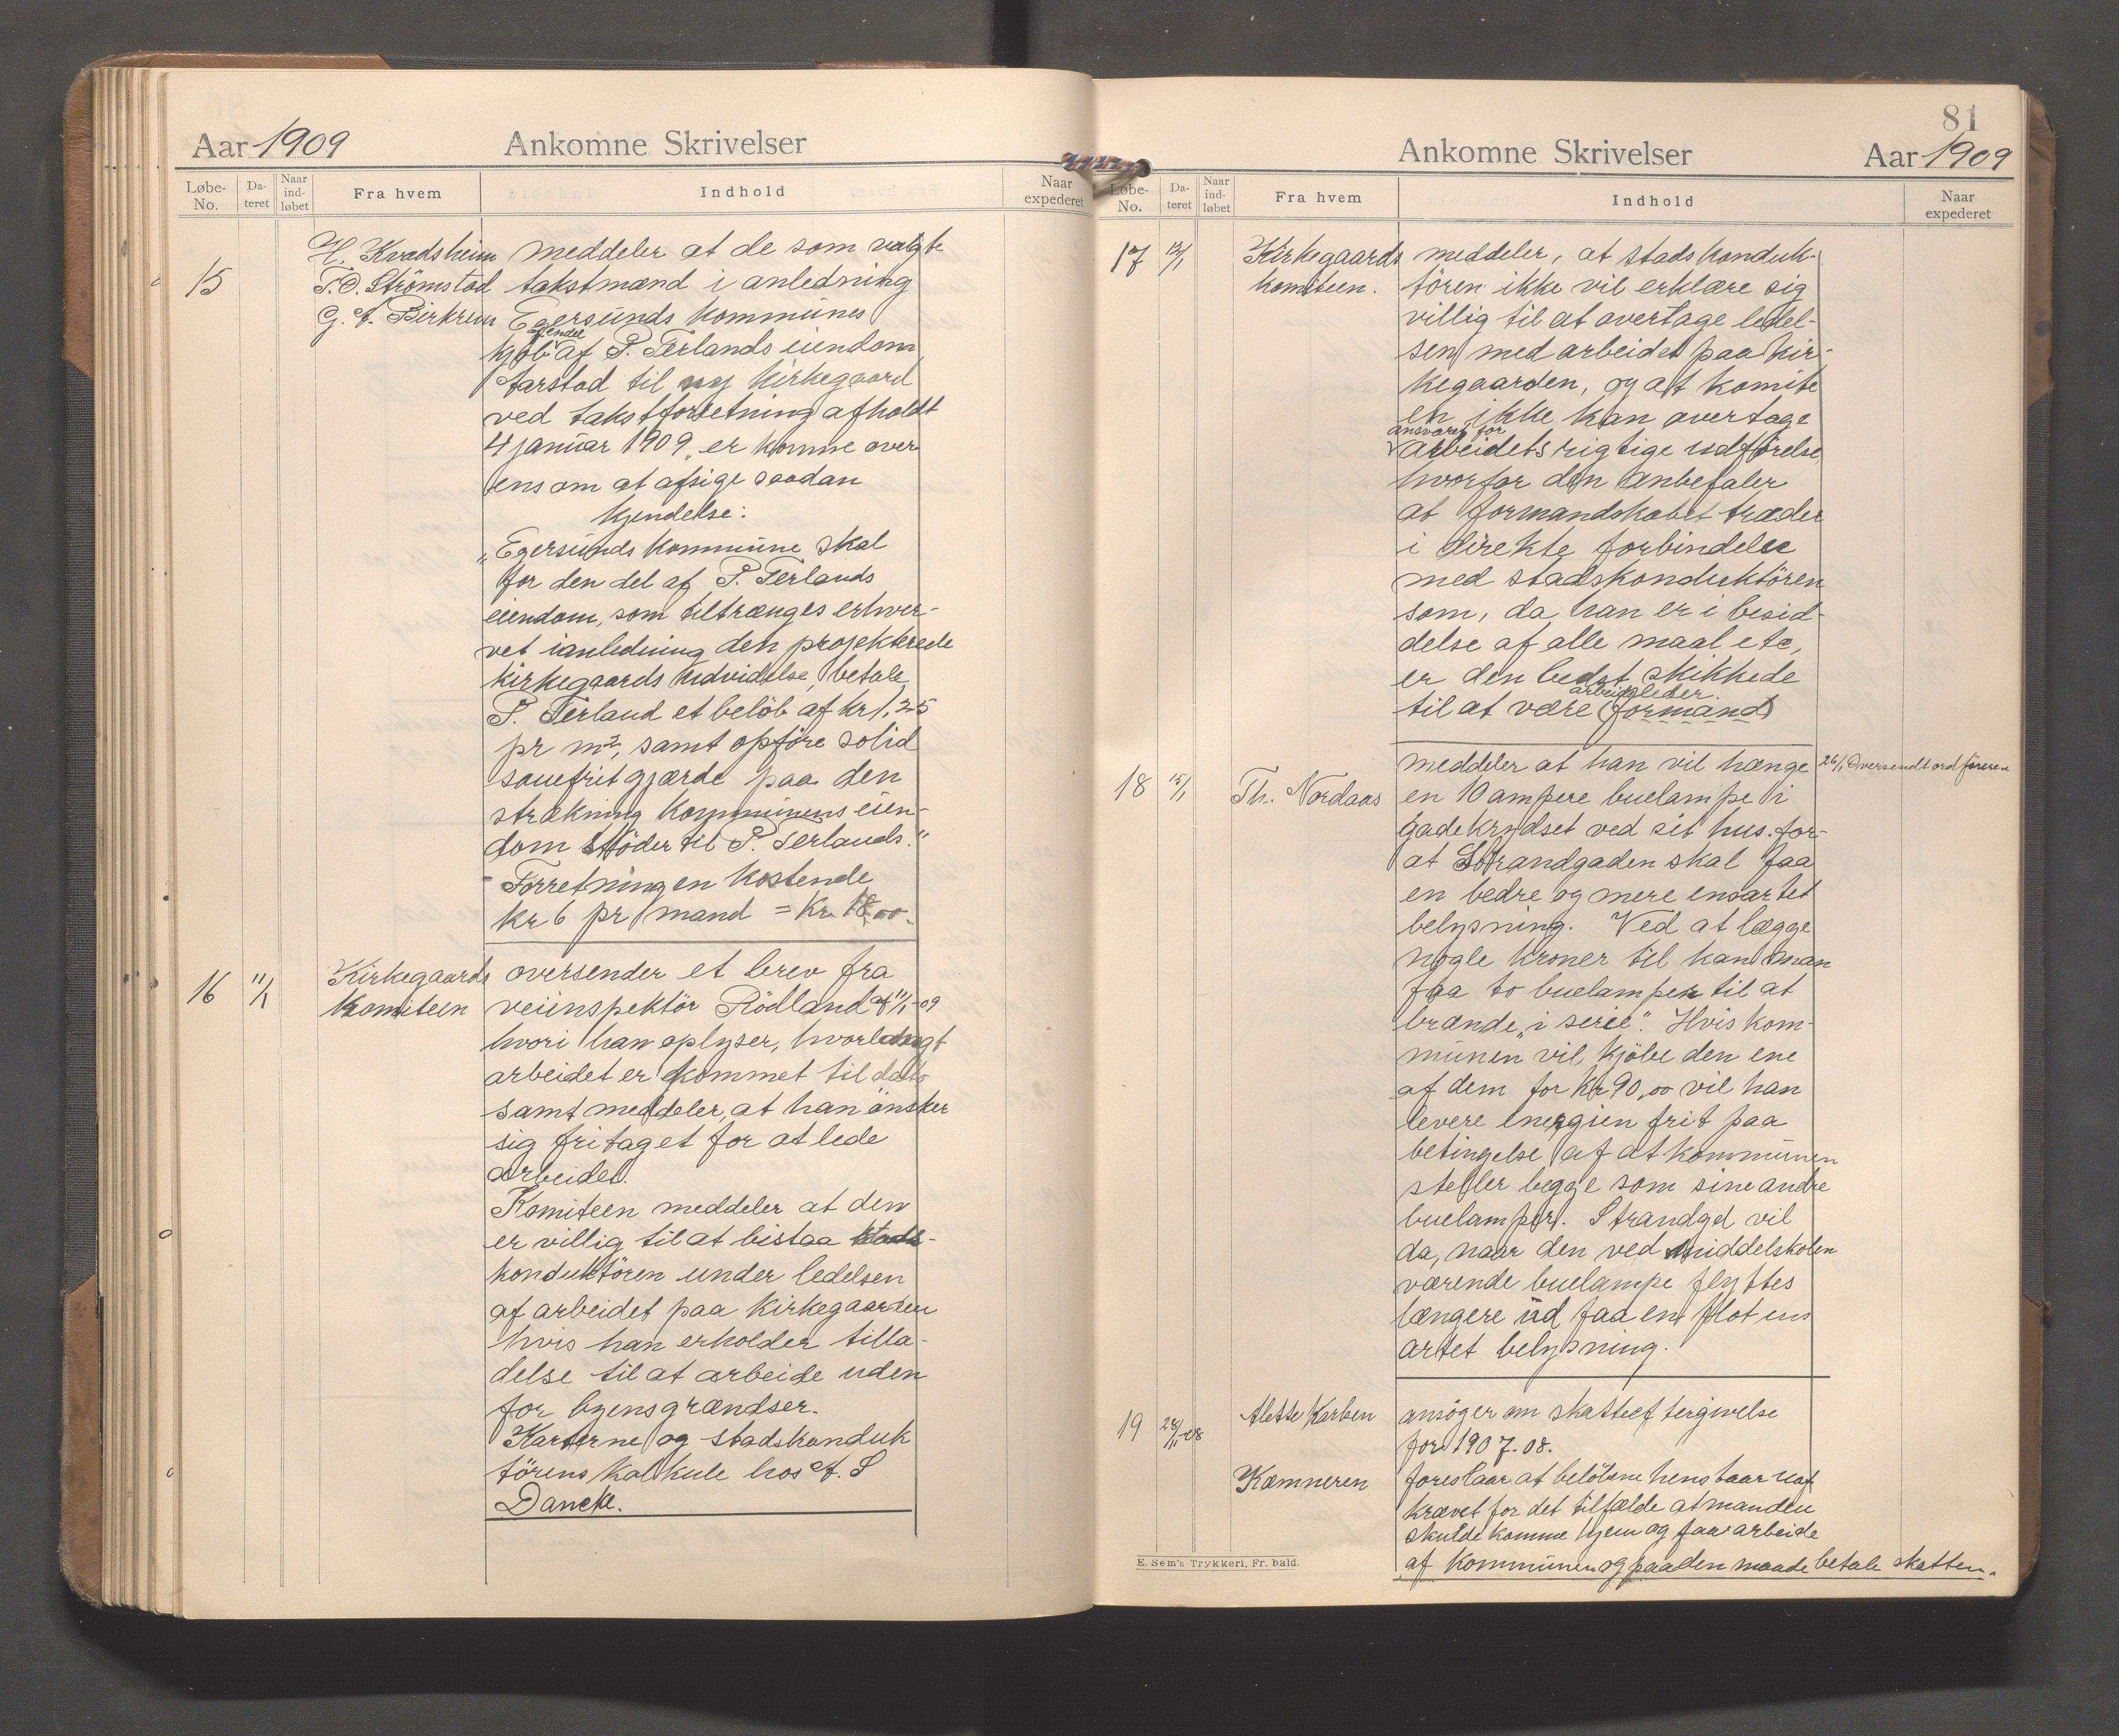 Aar 1909 Ankomne Skrivelser
Løbe-No. Da-teret Naar ind-løbet Fra hvem Indhold Naar expederet
15 H. Kvadsheim meddeler at de som valgte
T. O. Strömstad takstmænd i anledning
G. A. Birkrem Egersunds kommunes
kjøb en del af P. Terlands eiendom
Aarstad til ny kirkegaard
ved takstforretning afholdt
4 januar 1909, er komne over
ens om at afsige saadan
kjendelse:
„Egersunds kommune skal
for den del af P. Terlands
eiendom, som tiltrænges erhver-
vet i anledning den projekterede
kirkegaards udvidelse, betale
P. Terland et belöb af kr 1,25
pr m², samt opföre solid
sauefrit gjærde paa den
strækning kommunens eien-
dom stöder til P. Terlands."
Forretningen kostende
kr 6 pr mand = Kr. 18,00.
16 11/1 Kirkegaards oversender et brev fra
Komiteen veiinspektör Rödland af 11/1-09
hvori han oplyser, hvorlangt
arbeidet er kommet til dato
samt meddeler, at han önsker
sig fritaget for at lede
arbeidet.
Komiteen meddeler at den
er villig til at bistaa stads-
konduktören under ledelsen
af arbeidet paa kirkegaarden
hvis han erholder tilla-
delse til at arbeide uden
for byens grændser.
Karterne og stadskonduk
törens kalkule hos A. S
Dancke.
81
Ankomne Skrivelser Aar 1909
Løbe-No. Da-teret Naar ind-løbet Fra hvem Indhold Naar expederet
17 12/1 Kirkegaards meddeler, at stadskonduk-
komiteen. tören ikke vil erklære sig
villig til at overtage ledel-
sen med arbeidet paa kir-
kegaarden, og at komite
en ikke kan overtage
ansvaret for
arbeidets rigtige udförelse,
hvorfor den anbefaler
at formandskabet træder
i direkte forbindelse
med stadskonduktören
som, da han er i besid-
delse af alle maal etc,
er den bedst skikkede
arbeidsleder.
til at være (formand)
meddeler at han vil hænge 26/1 Oversendt ordföreren
18 15/1 Th. Nordaas en 10 ampere buelampe i
gadekrydset ved sit hus. for-
at Strandgaden skal faa
en bedre og mere ensartet
belysning. Ved at lægge
nogle kroner til kan man
faa to buelamper til at
brænde „i serie". Hvis kom-
munen vil kjöbe den ene
af dem for kr 90,00 vil han
levere energien frit paa
betingelse af at kommunen
steller begge som sine andre
buelamper. Strandgd vil
da, naar den ved middelskolen
værende buelampe flyttes
længere ud faa en flot ens
artet belysning.
19 28/11-08 Alette Karlsen ansöger om skatteeftergivelse
for 1907-08.
Kæmneren foreslaar at belöbene henstaar uaf
krævet for det tilfælde at manden
skulde komme hjem og faar arbeide
af kommunen og paa den maade betale skatten.
E. Sem's Trykkeri, Fr. hald.